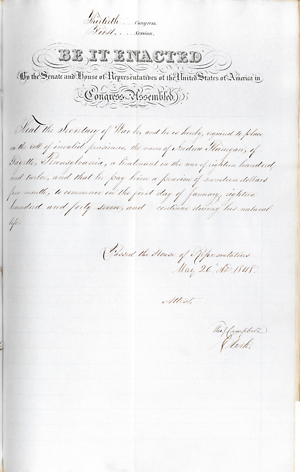 Thirtieth Congress
First Session
BE IT ENACTED
By the Senate and House of Representatives of the United States of America in
Congress Assembled
That the Secretary of War be, and he is hereby, required to place
on the roll of invalid pensioners, the name of Andrew Flanegan, of
Pennsylvania, a lieutenant in the war of eighteen hundred
and twelve, and that he pay him a pension of seventeen dollars
per month, to commence on the first day of January, eighteen
hundred and forty seven, and continue during his natural
life.
Passed the House of Representatives
May 26, 1848.
Attest,
Campbell
Clerk.